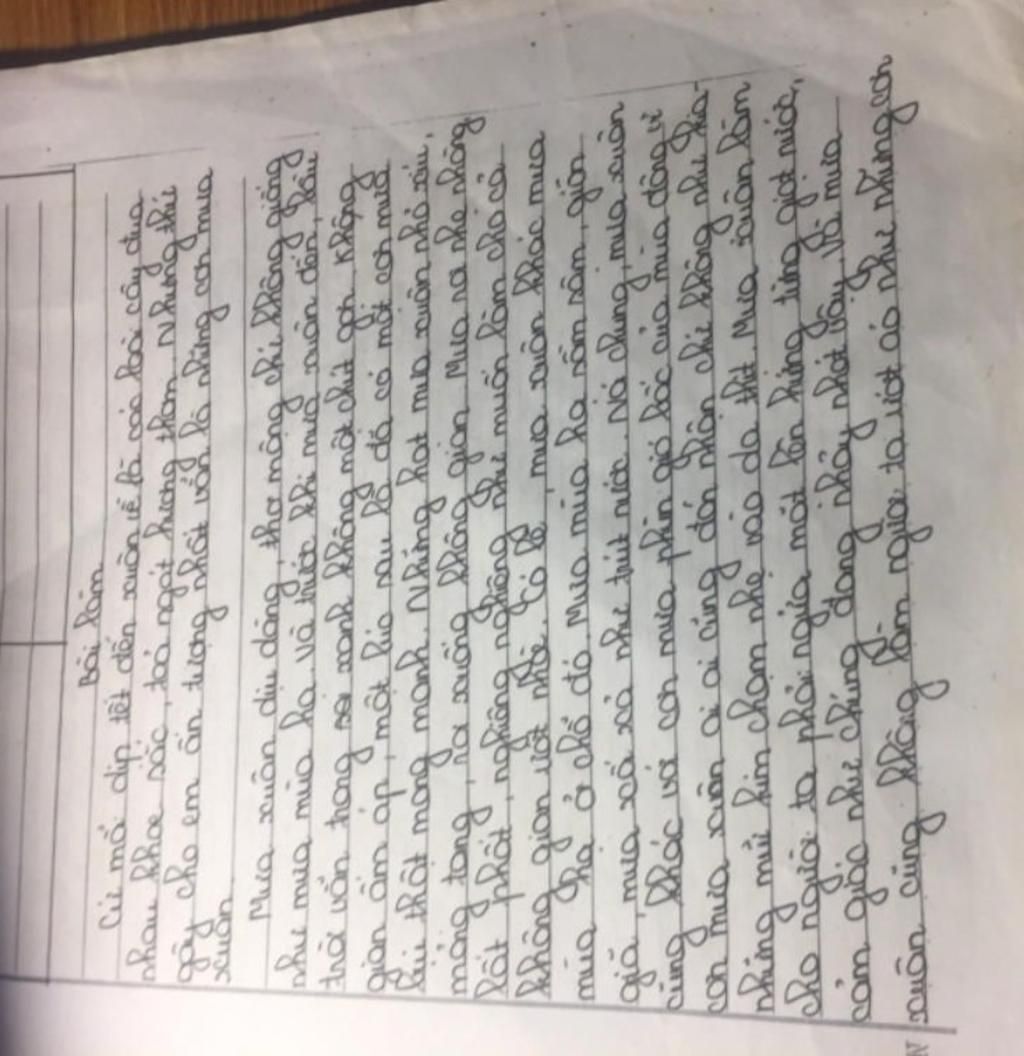 Bài làm
Cứ mỗi dịp tết đến xuân về là các loài cây đua
nhau khoe sắc, toả ngát hương thơm. Nhưng thứ
gây cho em ấn tượng nhất vẫn là những cơn mưa
xuân.
Mưa xuân dịu dàng, thơ mộng chứ không giống
như mưa mùa hạ. Và trước khi mưa xuân đến, bầu
trời vẫn trong xanh không một chút gợn. Không
gian ấm áp, một lúc sau là đã có một cơn mưa
bụi thật mỏng manh. Những hạt mưa xuân nhỏ xíu,
mỏng tang, rơi xuống không gian. Mưa rơi nhẹ nhàng
lất phất, nghiêng nghiêng như muốn làm cho cả
không gian ướt nhòe. Có lẽ, mưa xuân khác mưa
mùa hạ ở chỗ đó. Mưa mùa hạ rầm rầm, giận
giữ, mưa xối xả như trút nước. Nói chung, mưa xuân
cũng khác với cơn mưa phùn gió bấc của mùa đông vì
cơn mưa xuân ai ai cũng đón nhận chứ không như
những mũi kim chạm nhẹ vào da thịt. Mưa xuân làm
cho người ta phải ngửa mặt lên hứng từng giọt nước,
cảm giác như chúng đang nhảy nhót vậy. Và mưa
xuân cũng không làm người ta ướt áo như những cơn